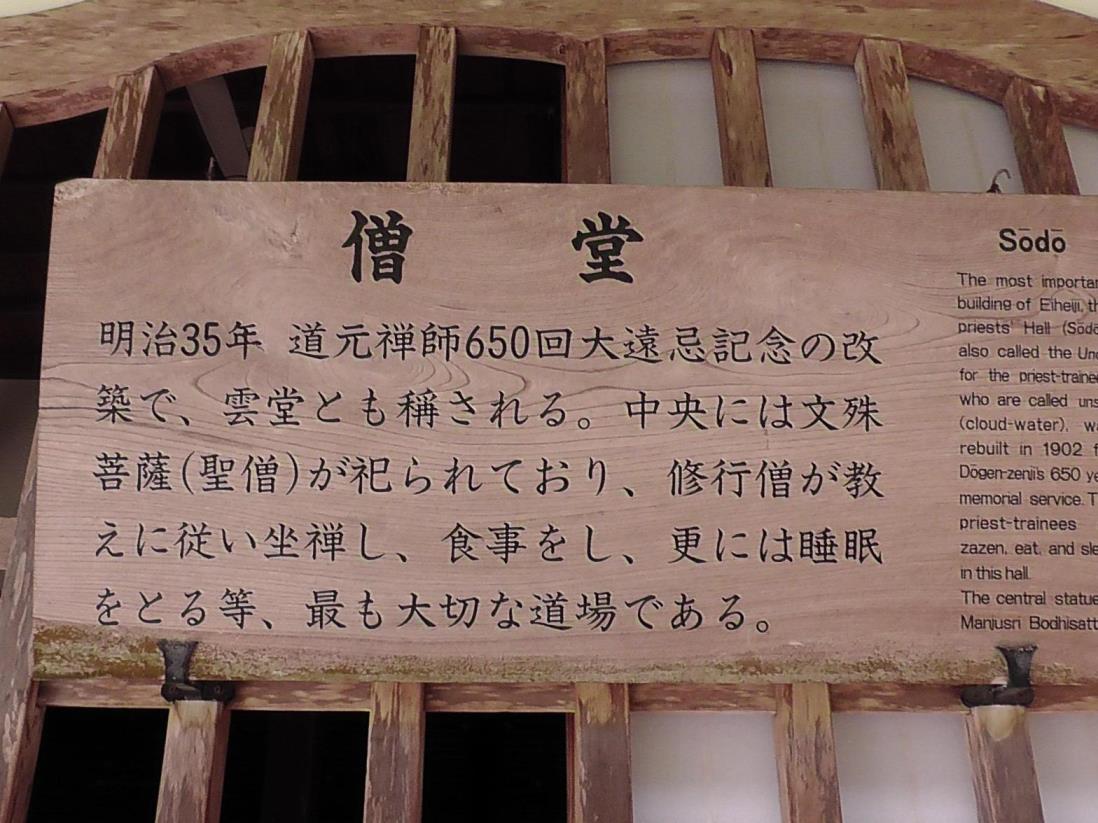 僧 堂
明治35年 道元禅師650回大遠忌記念の改
築で、雲堂とも稱される。中央には文殊
菩薩(聖僧)が祀られており、修行僧が教
えに従い坐禅し、食事をし、更には睡眠
をとる等、最も大切な道場である。
Sōdō
The most
building of Eiheiji,
priests' Hall
also called the
for the
who are called
(cloud-water),
rebuilt in 1902
Dōgen-zenji's 650
memorial service.
priest-trainees
zazen, eat, and
in this hall.
The central
Manjusri